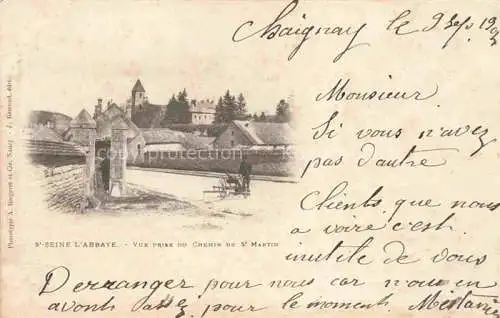 Chaignay le 9 Sept 1903
Monsieur
Si vous n'avez
pas d'autre
Clients que nous
a voire c'est
inutile de vous
Derranger pour nous car nous en
avont assez pour le moment.
St-SEINE L'ABBAYE. - VUE PRISE DU CHEMIN DE St MARTIN
Phototypie A. Bergeret et Cie, Nancy - J. Renaud, édit.